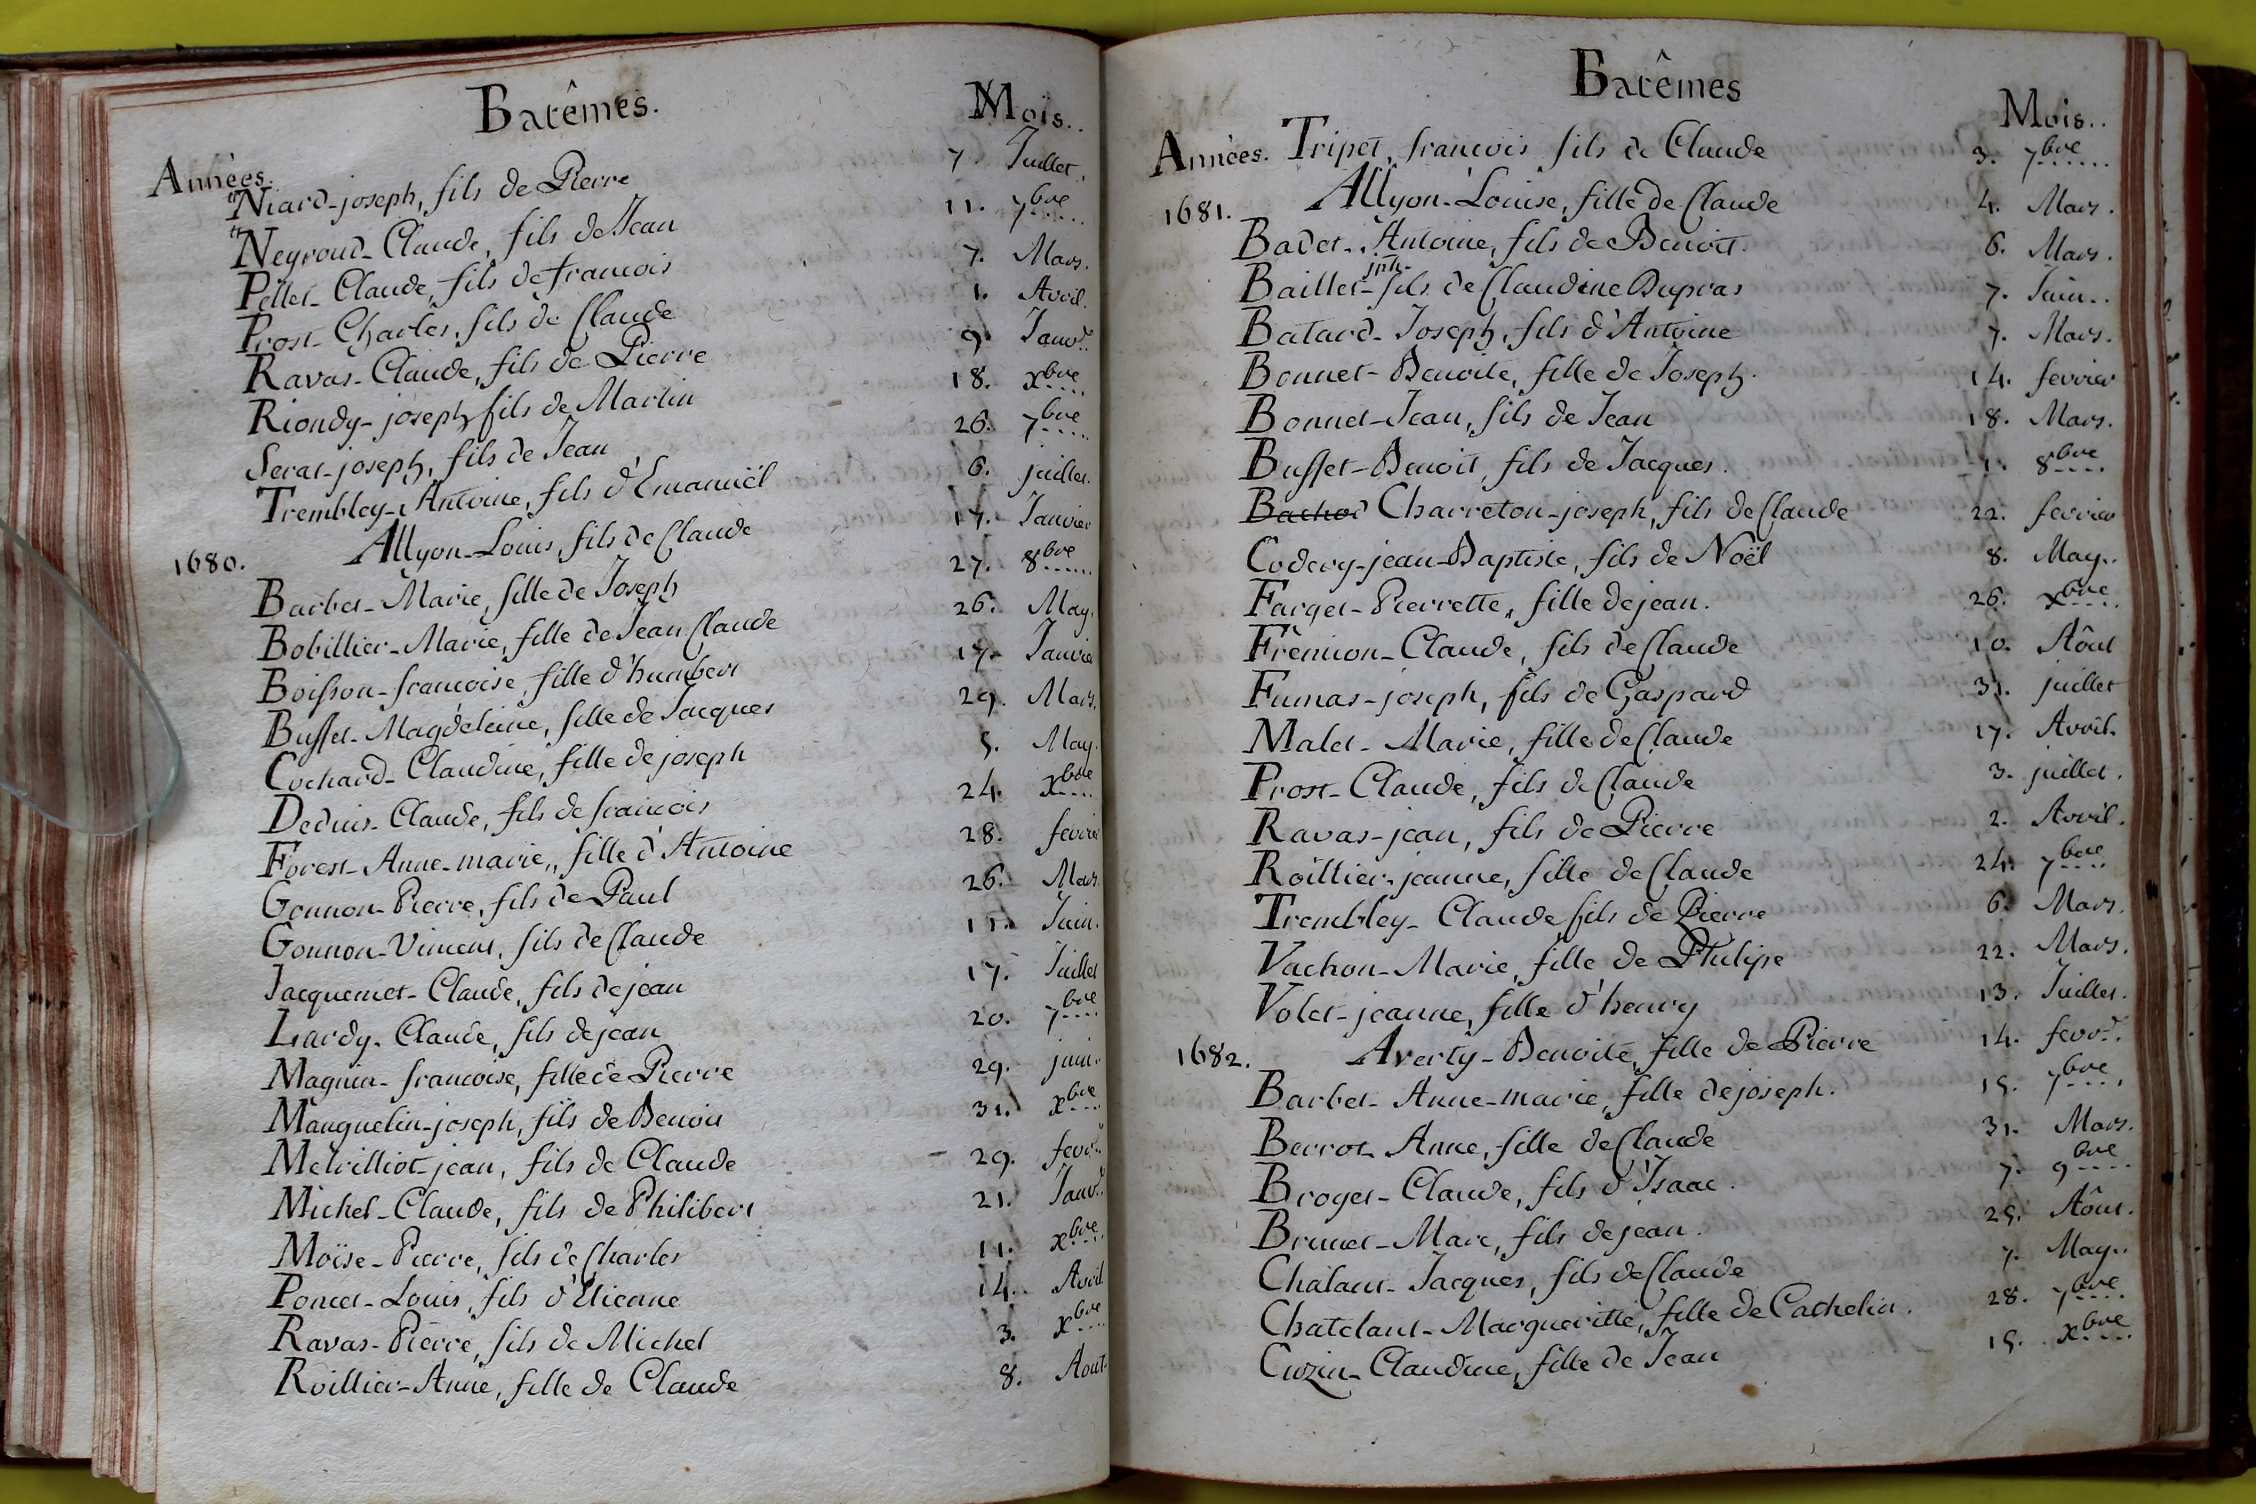 Batêmes. Mois..
Années.
Niard-joseph, fils de Pierre 7. Juillet.
Neyroud-Claude, fils de Jean 11. 7bre
Pellet-Claude, fils de francois 7. Mars.
Prost-Charles, fils de Claude 1. Avril.
Ravas-Claude, fils de Pierre 9. Janvr.
Riondy-joseph, fils de Martin 18. xbre
Serat-joseph, fils de Jean 26. 7bre
Trembley-Antoine, fils d'Emanuël 6. juillet.
1680. Allyon-Louis, fils de Claude 17. Janvier
Barbet-Marie, fille de Joseph 27. 8bre
Bobillier-Marie, fille de Jean Claude 26. May.
Boisson-francoise, fille d'humbert 17. Janvie
Buffet-Magdeleine, fille de Jacques 29. Mars.
Cochard-Claudine, fille de joseph 5. May.
Deduis-Claude, fils de francois 24. xbre
Forest-Anne-marie, fille d'Antoine 28. fevrie
Gonnon-Pierre, fils de Paul 26. Mars.
Gonnon-Vincent, fils de Claude 11. Juin.
Jacquemet-Claude, fils de jean 17. Juillet
Lardy-Claude, fils de jean 20. 7bre
Magnin-francoise, fille de Pierre 29. juin.
Mauguelin-joseph, fils de Benoit 31. xbre
Melvilliot-jean, fils de Claude 29. fevr.
Michel-Claude, fils de Philibert 21. Janvr.
Moïse-Pierre, fils de Charles 11. xbre
Poncet-Louis, fils d'Etienne 14. Avril
Ravas-Pierre, fils de Michel 3. xbre
Roillier-Anne, fille de Claude 8. Aout.
Batêmes Mois..
Années. Tripet, francois fils de Claude 3. 7bre
1681. Allyon-Louise, fille de Claude 4. Mars.
Badet-Antoine, fils de Benoit. 6. Mars.
Baillet-jph- fils de Claudine Dupras 7. Juin..
Batard-Joseph, fils d'Antoine 7. Mars.
Bonnet-Benoite, fille de Joseph. 14. fevrier
Bonnet-Jean, fils de Jean 18. Mars.
Buffet-Benoit, fils de Jacques. 1. 8bre
Bachod Charreton-joseph, fils de Claude 22. fevrier
Codery-jean-Baptiste, fils de Noël 8. May..
Farget-Pierrette, fille de jean. 26. xbre
Frêmion-Claude, fils de Claude 10. Aôut
Fumas-joseph, fils de Gaspard 31. juillet
Malet-Marie, fille de Claude 17. Avril.
Prost-Claude, fils de Claude 3. juillet.
Ravas-jean, fils de Pierre 2. Avril.
Roillier-jeanne, fille de Claude 24. 7bre
Trembley-Claude, fils de Pierre 6. Mars.
Vachon-Marie, fille de Philipe 22. Mars.
Volet-jeanne, fille d'henry 13. Juillet.
1682. Averty-Benoite, fille de Pierre 14. fevr.
Barbet-Anne-marie, fille de joseph. 15. 7bre
Berrot-Anne, fille de Claude 31. Mars.
Broget-Claude, fils d'Isaac. 7. 9bre
Brunet-Marc, fils de jean. 25. Aôut.
Chalant-Jacques, fils de Claude 7. May..
Chatelant-Margueritte, fille de Cathelin. 28. 7bre
Cuzin-Claudine, fille de Jean 15. xbre